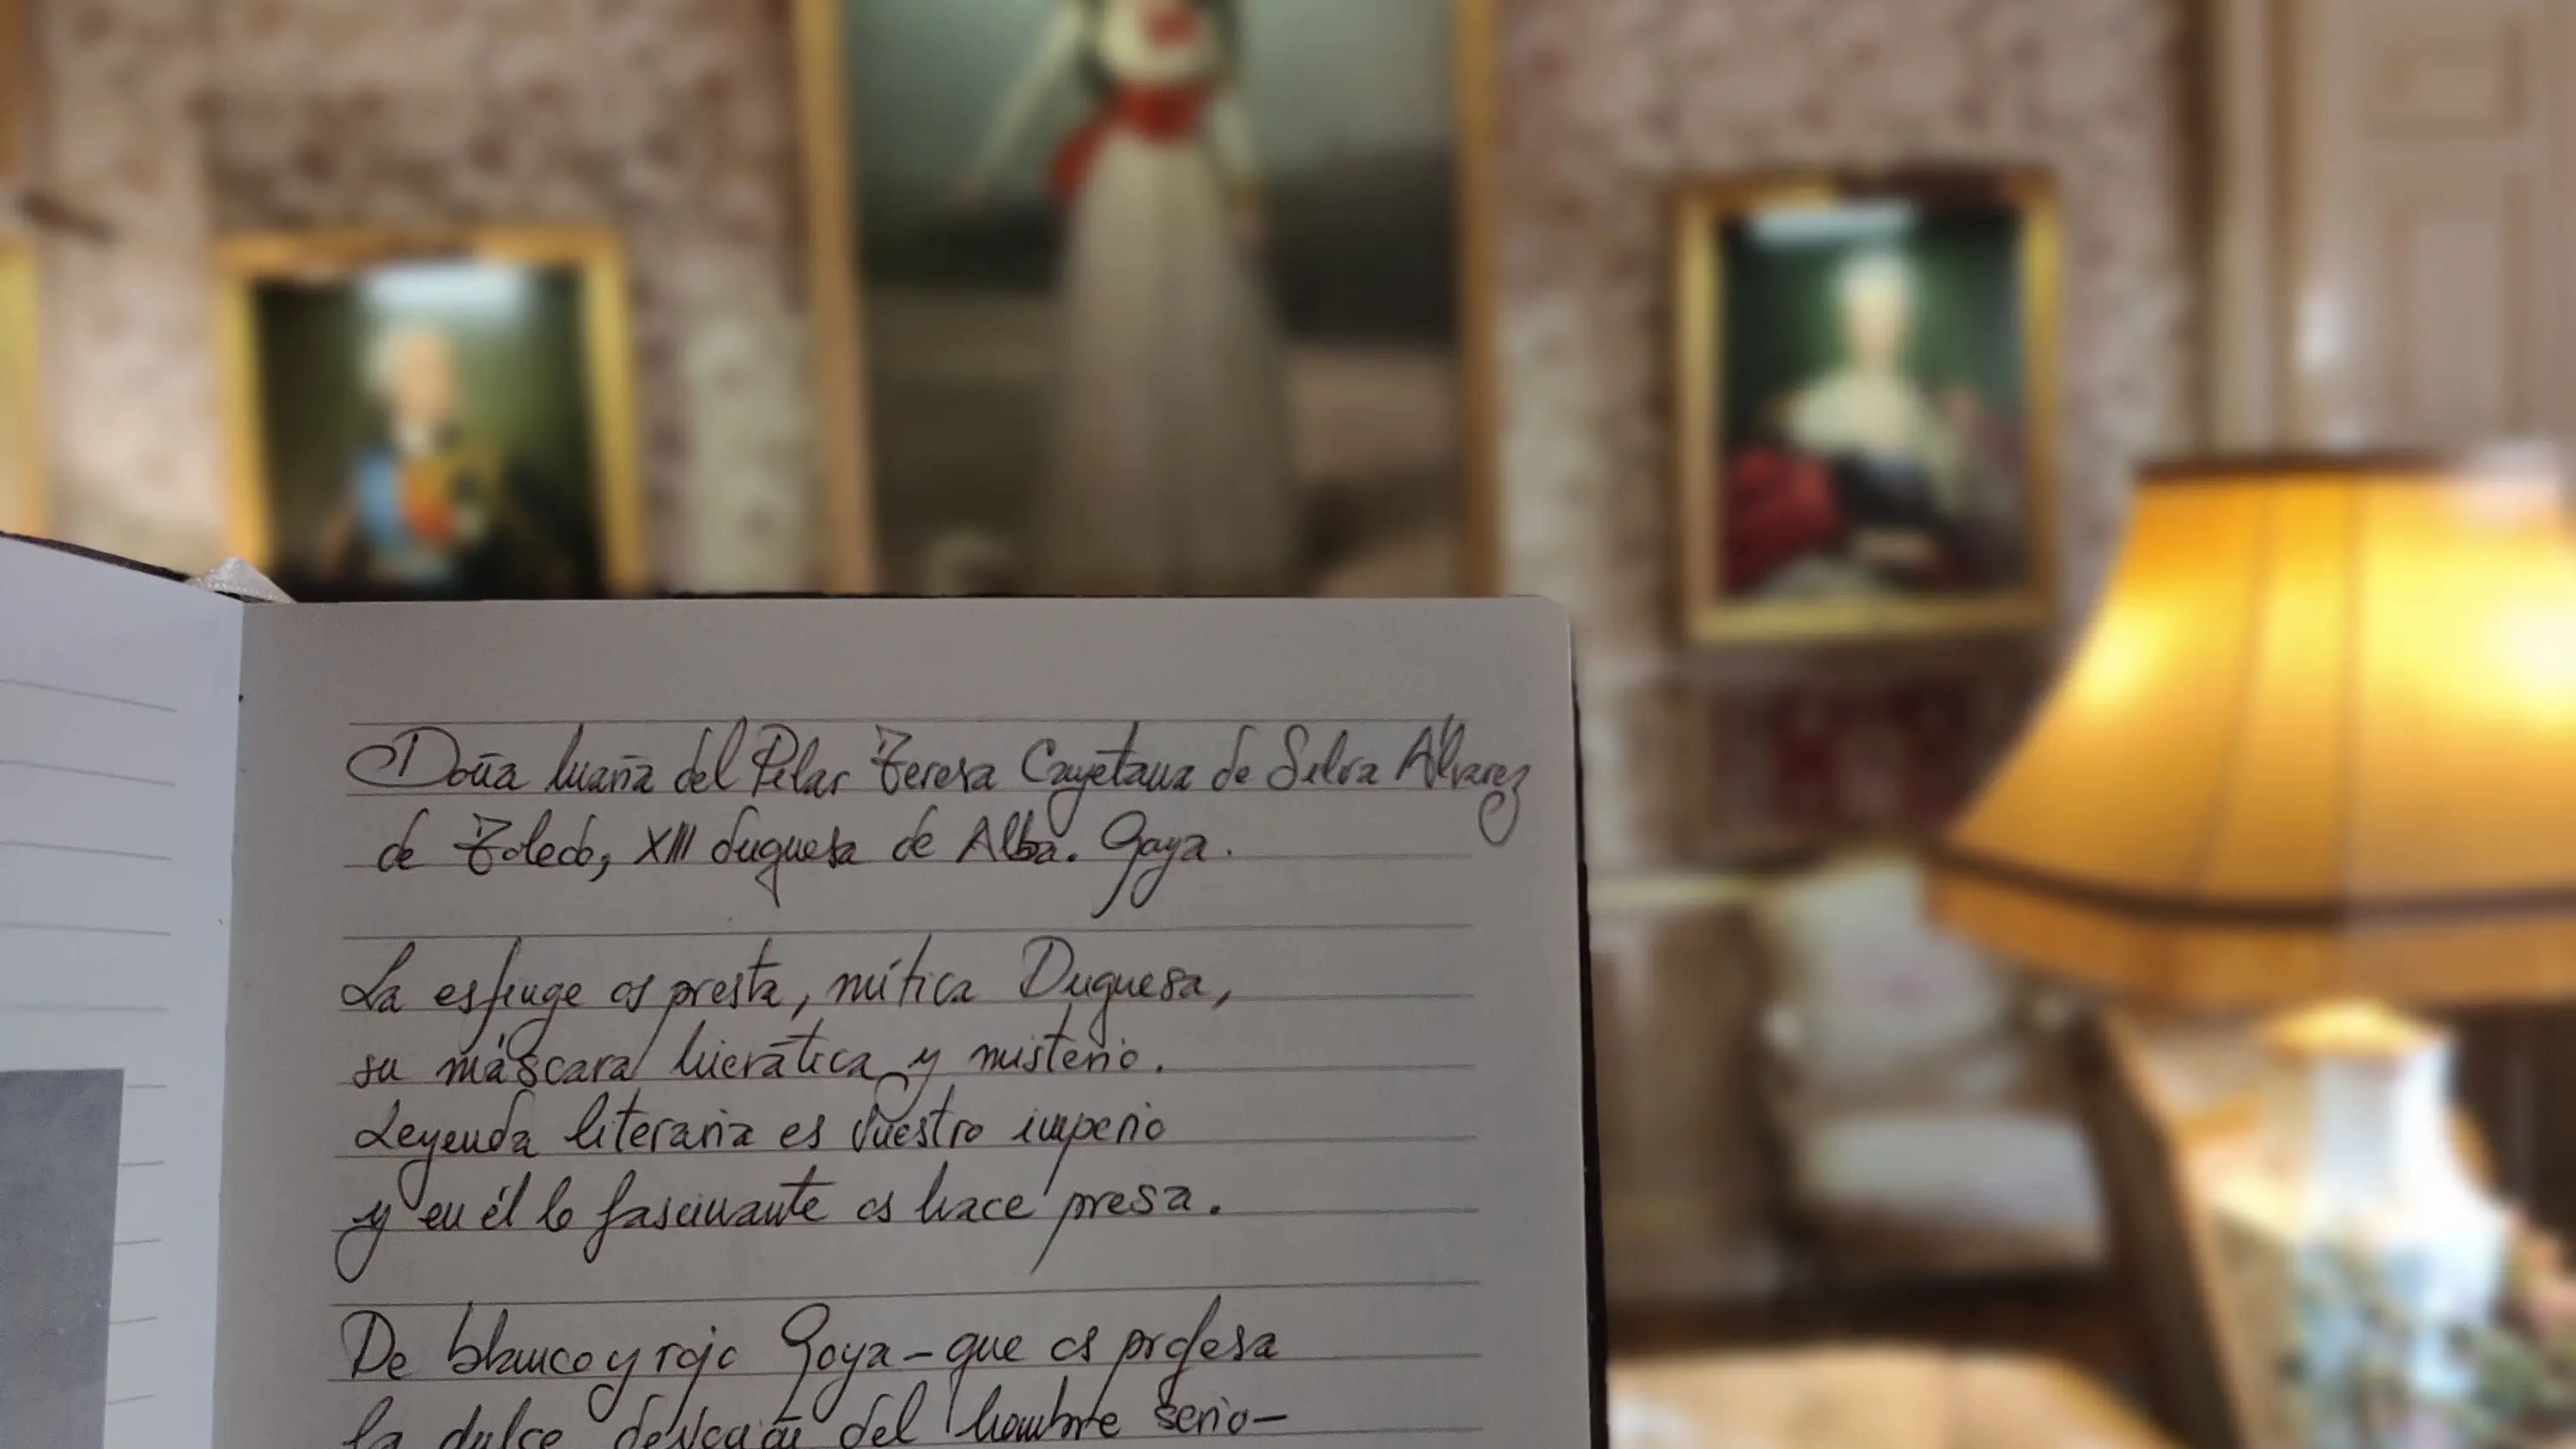 Doña María del Pilar Teresa Cayetana de Silva Álvarez
de Toledo, XIII duquesa de Alba. Goya.
La esfinge os presta, mítica Duquesa,
su máscara hierática y misterio.
Leyenda literaria es vuestro imperio
y en él lo fascinante os hace presa.
De blanco y rojo Goya - que os profesa
la dulce devoción del hombre serio -